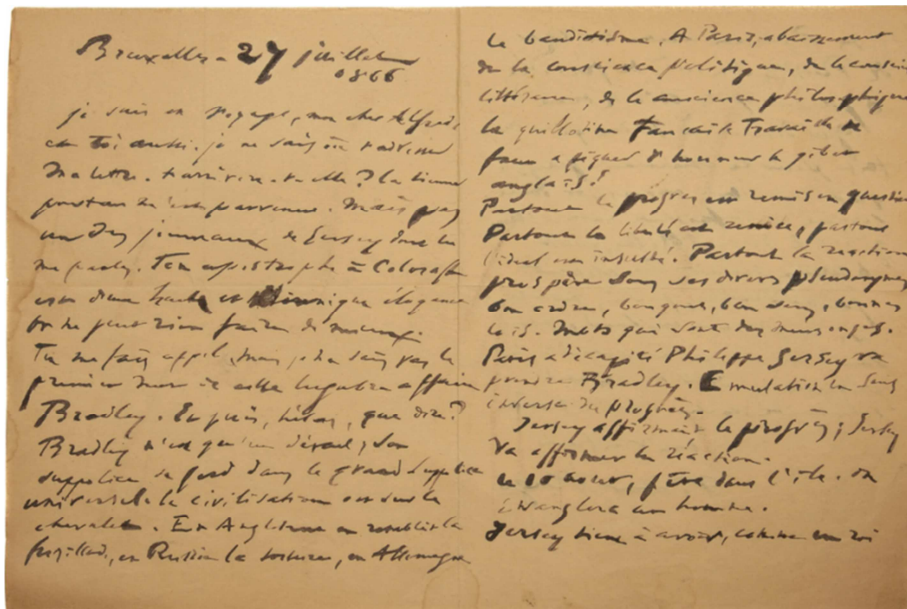 Bruxelles - 27 juillet
1866
je suis en voyage, mon cher Alfred,
et toi aussi. je ne sais où t'adresser
ma lettre. t'arrivera-t-elle? la tienne
pourtant m'est parvenue. Mais pas
un des journaux de Jersey dont tu
me parles. Ton apostrophe à
est d'une haute et éloquence
on ne peut rien faire de mieux.
Tu me fais appel, mais je ne sais pas le
premier mot de cette lugubre affaire
Bradley. Et puis, hélas, que dire?
Bradley n'est qu'un détail; son
supplice se perd dans le grand supplice
universel. la civilisation est sur le
chevalet. En Angleterre on rétablit la
fusillade, en Russie la torture, en Allemagne
le banditisme. A Paris, abaissement
de la conscience politique, de la conscience
littéraire, de la conscience philosophique
la guillotine française travaille de
façon à piquer d'honneur le gibet
anglais.
Partout le progrès est remis en question
Partout la liberté est reniée, partout
l'idéal est insulté. Partout la réaction
prospère sous ses divers pseudonymes,
bon ordre, bon goût, bon sens, bonnes
lois. mots qui sont des mensonges.
Paris a décapité Philippe Jersey va
pendre Bradley. Emulation en sens
inverse du progrès.
Jersey affirmait le progrès; Jersey
va affirmer la réaction.
le août, fête dans l'île. On
étranglera un homme.
Jersey tient à avoir, comme un roi